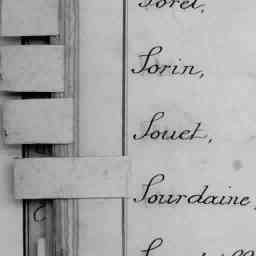 Sorel,
Sorin,
Souet,
Sourdaine,